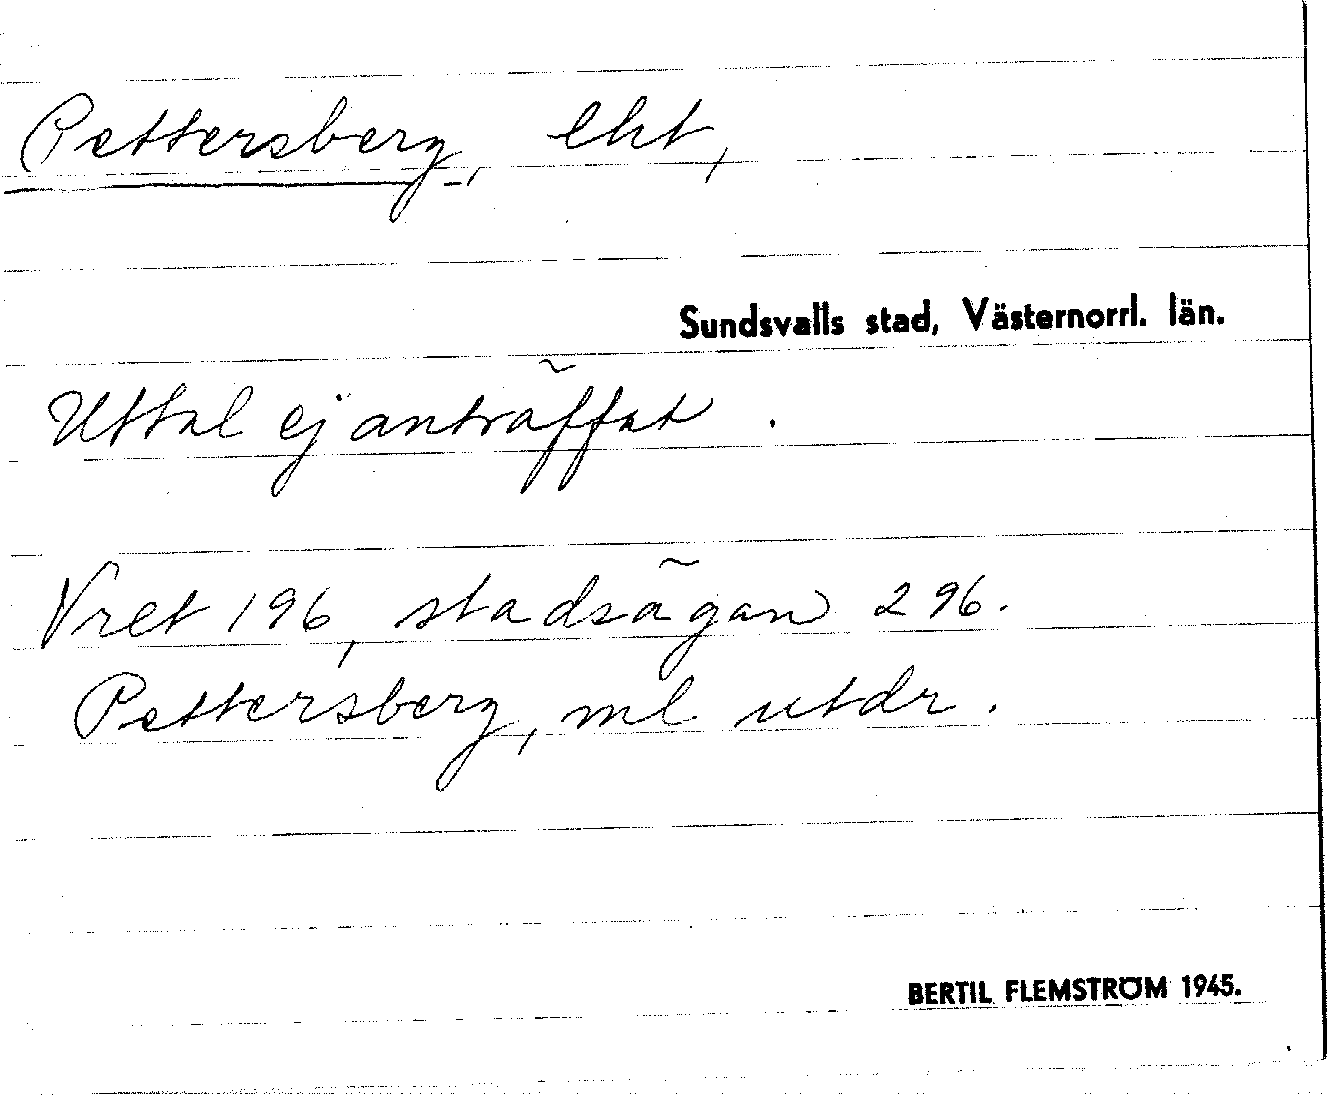 Pettersberg, lht,
Sundsvalls stad, Västernorrl. län.
Uttal ej anträffat.
Vret 196, stadsägan 296.
Pettersberg, ml utdr.
BERTIL FLEMSTRÖM 1945.